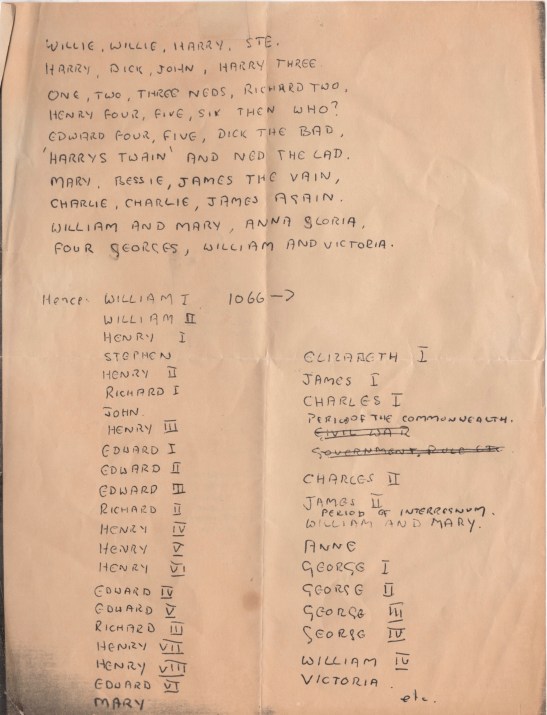 WILLIE, WILLIE, HARRY, STE.
HARRY, DICK, JOHN, HARRY THREE
ONE, TWO, THREE NEDS, RICHARD TWO,
HENRY FOUR, FIVE, SIX THEN WHO?
EDWARD FOUR, FIVE, DICK THE BAD,
'HARRYS TWAIN' AND NED THE LAD.
MARY, BESSIE, JAMES THE VAIN,
CHARLIE, CHARLIE, JAMES AGAIN.
WILLIAM AND MARY, ANNA GLORIA,
FOUR GEORGES, WILLIAM AND VICTORIA.
Hence: WILLIAM I 1066 →
WILLIAM II
HENRY I
STEPHEN
HENRY II
RICHARD I
JOHN.
HENRY III
EDWARD I
EDWARD II
EDWARD III
RICHARD II
HENRY IV
HENRY V
HENRY VI
EDWARD IV
EDWARD V
RICHARD III
HENRY VII
HENRY VIII
EDWARD VI
MARY
ELIZABETH I
JAMES I
CHARLES I
PERIOD OF THE COMMONWEALTH.
CIVIL WAR
GOVERNMENT, RULE ETC
CHARLES II
JAMES II
PERIOD OF INTERREGNUM.
WILLIAM AND MARY.
ANNE
GEORGE I
GEORGE II
GEORGE III
GEORGE IV
WILLIAM IV
VICTORIA
etc.